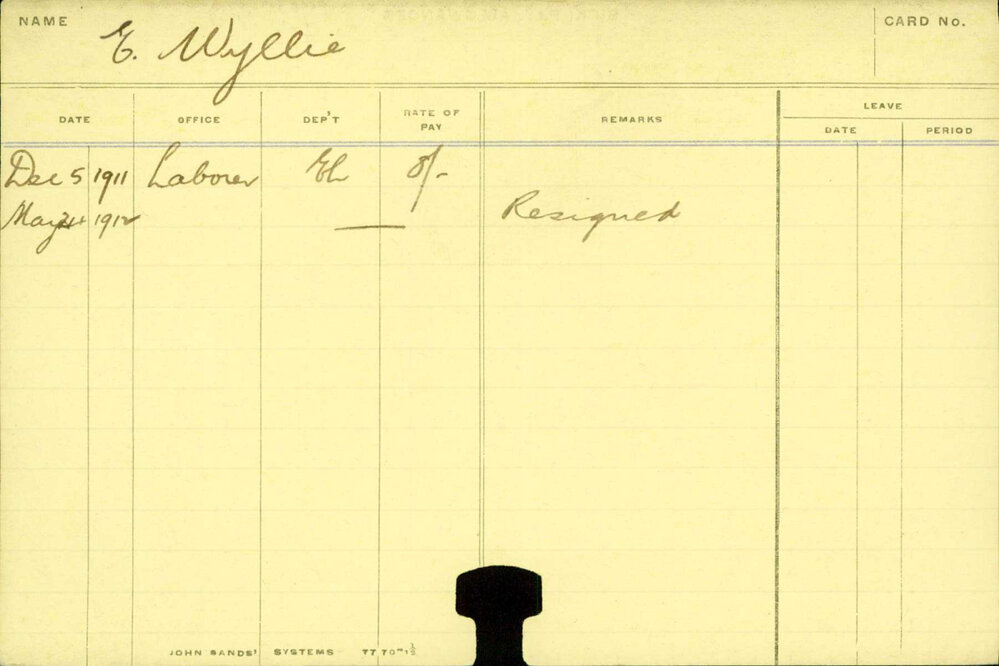 NAME
E. Wyllie
CARD No.
DATE OFFICE DEP'T RATE OF PAY REMARKS LEAVE
DATE PERIOD
Dec 5 1911 Laborer 8/-
May 1912 — Resigned
JOHN SANDS' SYSTEMS